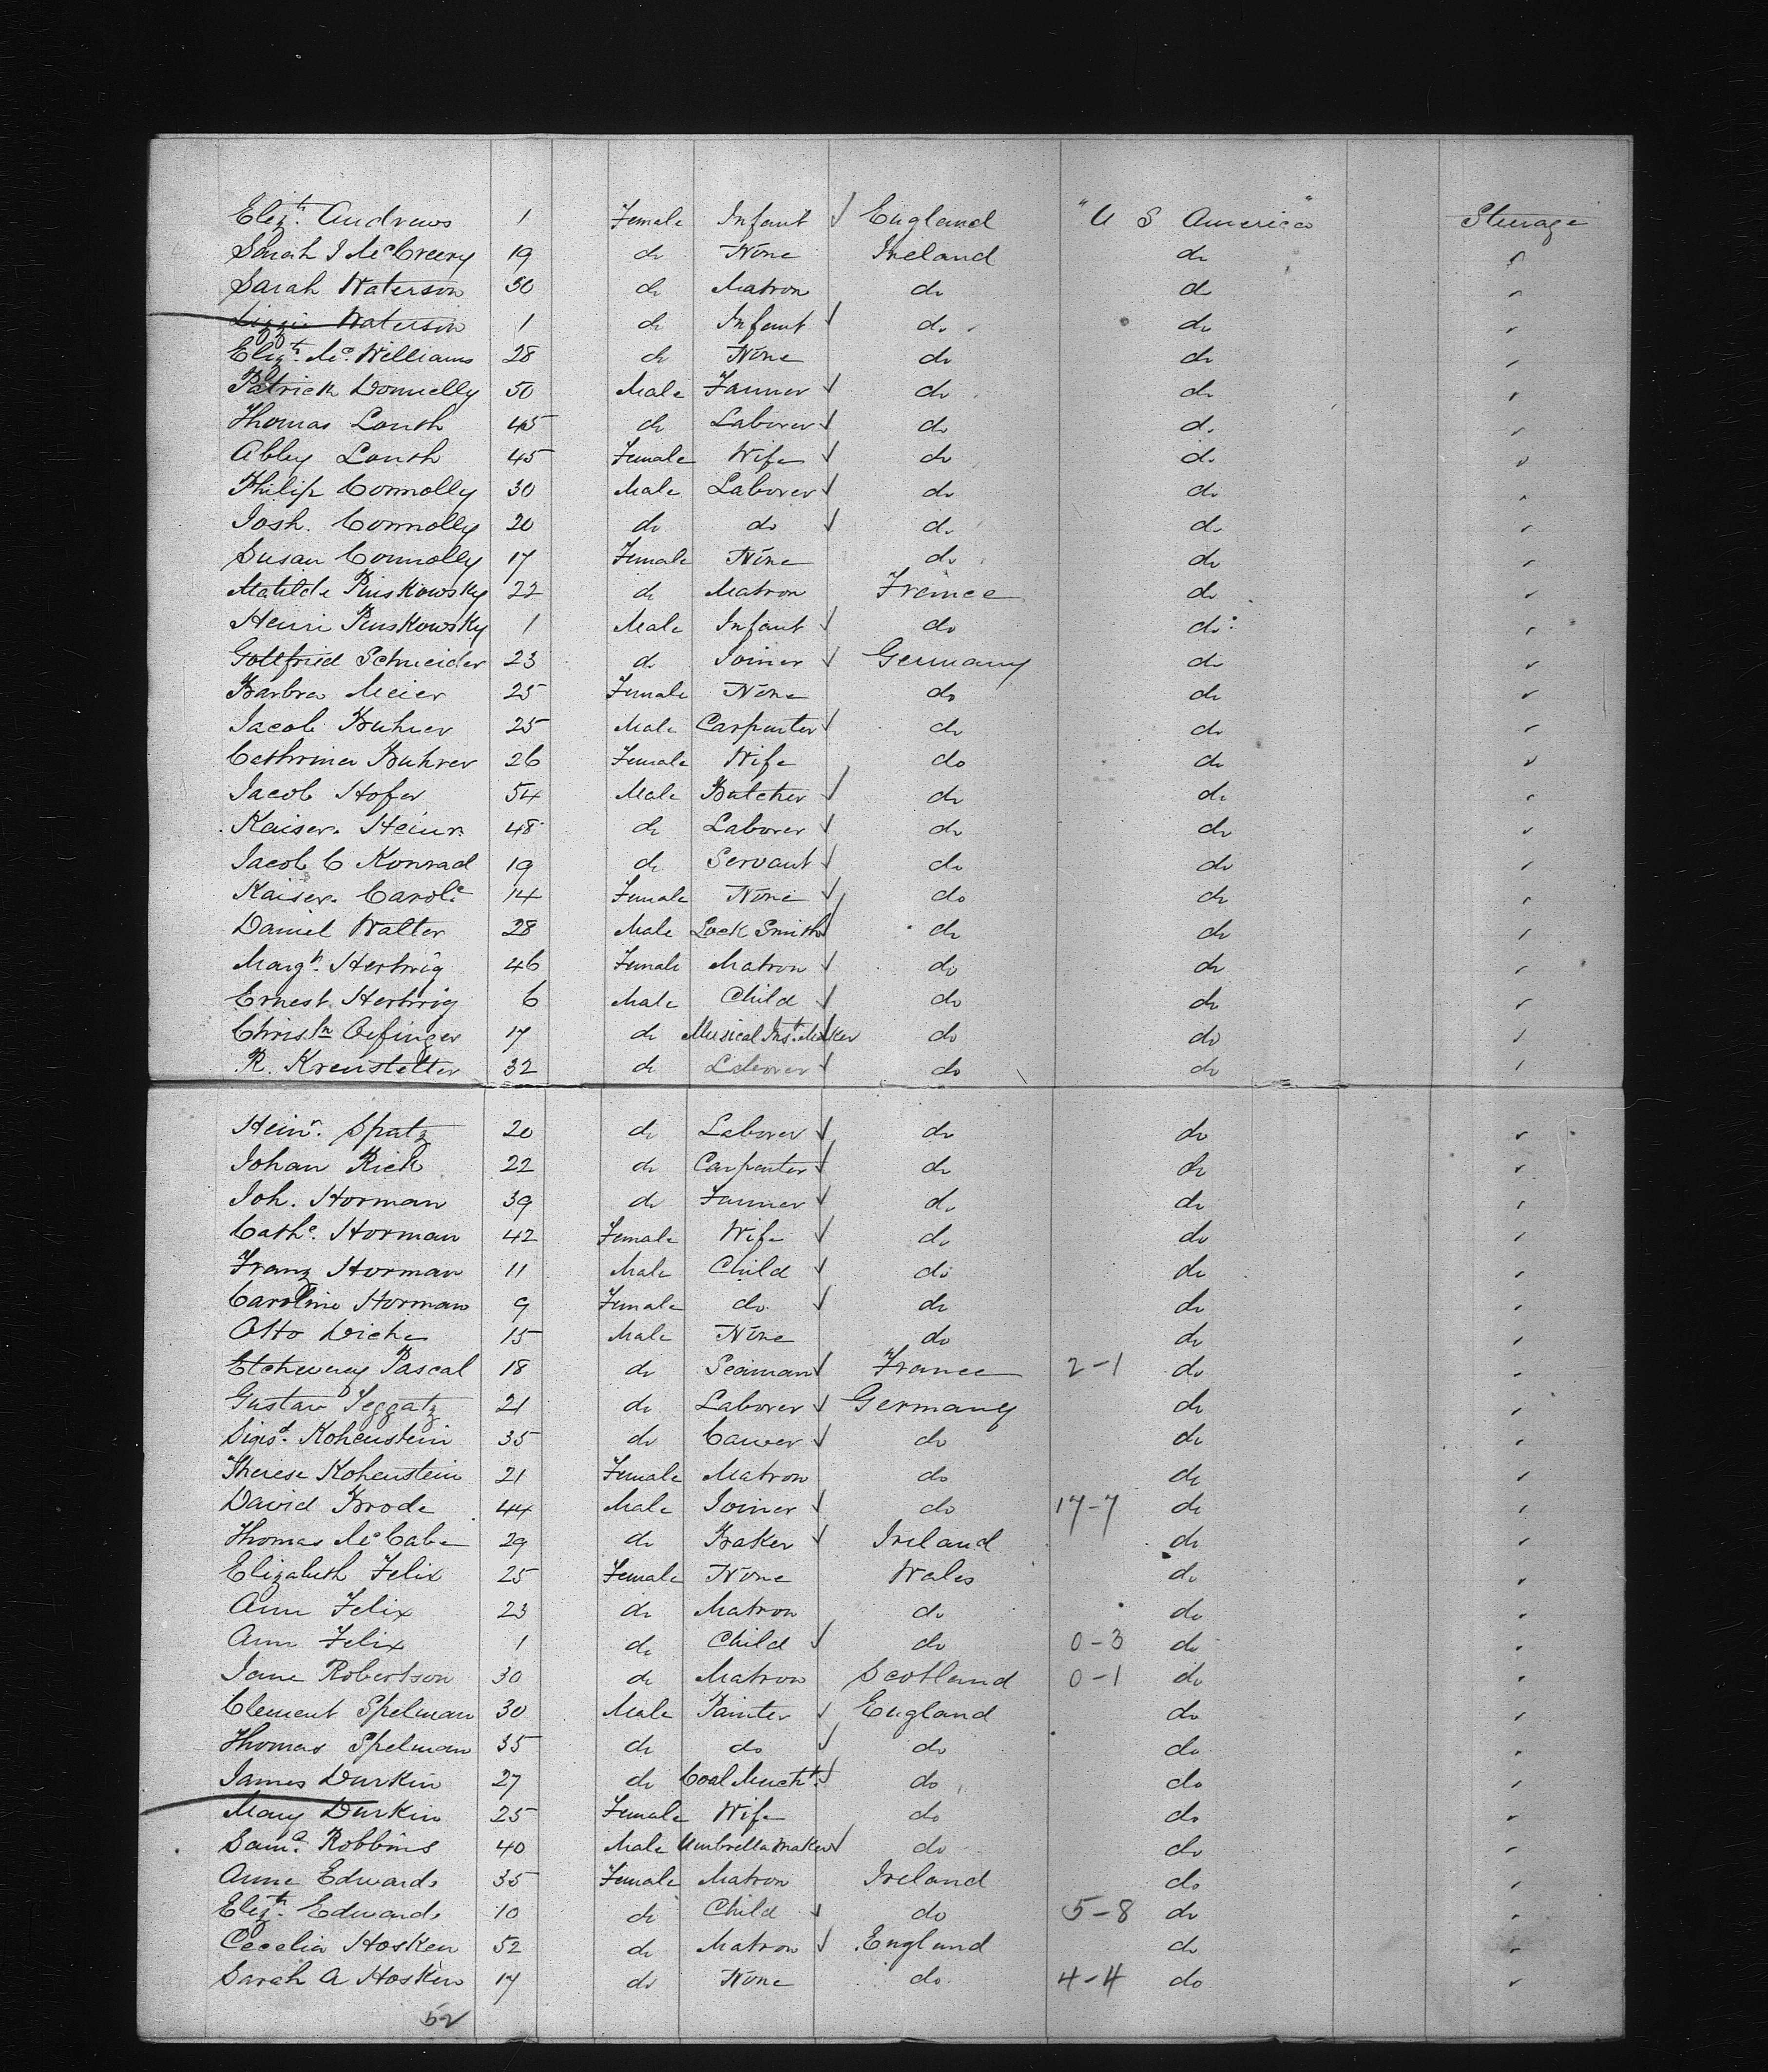 Elizth. Andrews 1 Female Infant ✓ England "U S America" Steerage
Sarah J McCreery 19 do None Ireland do "
Sarah Waterson 30 do Matron do do "
Lizzie Waterson 1 do Infant ✓ do do "
Elizth. Mc.Williams 28 do None do do "
Patrick Donnelly 50 Male Farmer ✓ do do "
Thomas Louth 45 do Laborer ✓ do do "
Abby Louth 45 Female Wife ✓ do do "
Philip Connolly 30 Male Laborer ✓ do do "
Josh. Connolly 20 do do ✓ do do "
Susan Connolly 17 Female None do do "
Matilde Pinskowsky 22 do Matron France do "
Henri Pinskowsky 1 Male Infant ✓ do do "
Gottfried Schneider 23 do Joiner ✓ Germany do "
Barbra Meier 25 Female None do do "
Jacob Buhrer 25 Male Carpenter ✓ do do "
Cathrina Buhrer 26 Female Wife do do "
Jacob Hofer 54 Male Butcher ✓ do do "
Kaiser. Heinr. 48 do Laborer ✓ do do "
Jacob C Konrad 19 do Servant ✓ do do "
Kaiser. Carole. 14 Female None ✓ do do "
Daniel Walter 28 Male Lock Smith ✓ do do "
Margt. Hertwig 46 Female Matron ✓ do do "
Ernest Hertwig 6 Male Child ✓ do do "
Christn Oefinger 17 do Musical Inst. Maker do do "
R. Kreustetter 32 do Laborer ✓ do do "
Heinr. Spatz 20 do Laborer ✓ do do "
Johan Rick 22 do Carpenter ✓ do do "
Joh. Horman 39 do Farmer ✓ do do "
Cathe. Horman 42 Female Wife ✓ do do "
Franz Horman 11 Male Child ✓ do do "
Caroline Horman 9 Female do ✓ do do "
Otto Diche 15 Male None do do "
Pascal 18 do Seaman ✓ France 2-1 do "
Gustav Teggatz 21 do Laborer ✓ Germany do "
Sigisd. Kohenstein 35 do Carver ✓ do do "
Therese Kohenstein 21 Female Matron do do "
David Brode 44 Male Joiner ✓ do 17-7 do "
Thomas McCabe 29 do Baker ✓ Ireland do "
Elizabeth Felix 25 Female None Wales do "
Ann Felix 23 do Matron do do "
Ann Felix 1 do Child ✓ do 0-3 do "
Jane Robertson 30 do Matron Scotland 0-1 do "
Clement Spelman 30 Male Painter ✓ England do "
Thomas Spelman 35 do do ✓ do do "
James Durkin 27 do Coal Mercht. ✓ do do "
Mary Durkin 25 Female Wife do do "
Saml. Robbins 40 Male Umbrella Maker ✓ do do "
Anne Edwards 35 Female Matron Ireland do "
Elizth. Edwards 10 do Child ✓ do 5-8 do "
Cecelia Hosken 52 do Matron ✓ England do "
Sarah A Hosken 17 do None do 4-4 do "
52